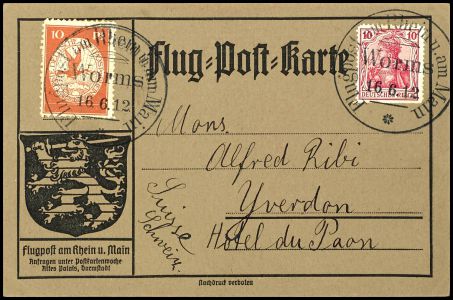 10 Pf
Flugpost am Rhein u. am Main
Worms
16.6.12
Flug-Post-Karte
10 10
DEUTSCHES REICH
Flugpost am Rhein u. am Main
Worms
16.6.12
Mons.
Alfred Ribi
Yverdon
Hotel du Paon
Suisse
Schweiz.
Flugpost am Rhein u. Main
Anfragen unter Postkartenwoche
Altes Palais, Darmstadt
Nachdruck verboten